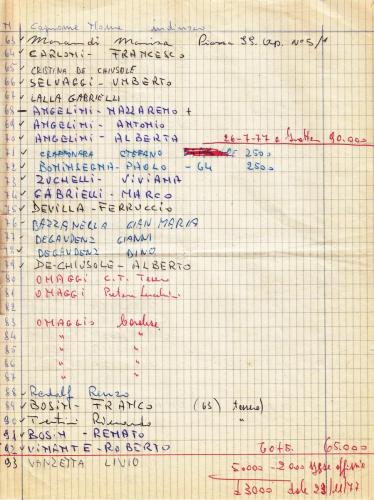 N Cognome Nome indirizzo
63 Morandi Marisa Piazza SS. Ap. N° 5/1
64 CARLONI - FRANCESCO
65 CRISTINA DE CHIUSOLE
66 SELVAGGI - UMBERTO
67 LALLA GABRIELLI
68 - ANGELINI - NAZZARENO +
69 ANGELINI - ANTONIO
70 ANGELINI - ALBERTA 26-7-77 90.000
71 STEFANO 2500
72 BONINSEGNA - PAOLO - 64 2500
73 ZUCHELLI - VIVIANA
74 GABRIELLI - MARCO
75 DEVILLA - FERRUCCIO
76 BAZZANELLA GIAN MARIA
77 DEGAUDENZ GIANNI
78 DEGAUDENZ DINO
79 DE-CHIUSOLE - ALBERTO
80 OMAGGI C.T.
81 OMAGGI
82
83 OMAGGIO
84 "
85 "
86 "
87 "
88 Redolf Renzo
89 BOSIN - FRANCO (65)
90 "
91 BOSIN - RENATO
92 VIMANTE - ROBERTO 65.000
93 VANZETTA LIVIO 5.000 - 2000
£ 3000 29/11/77